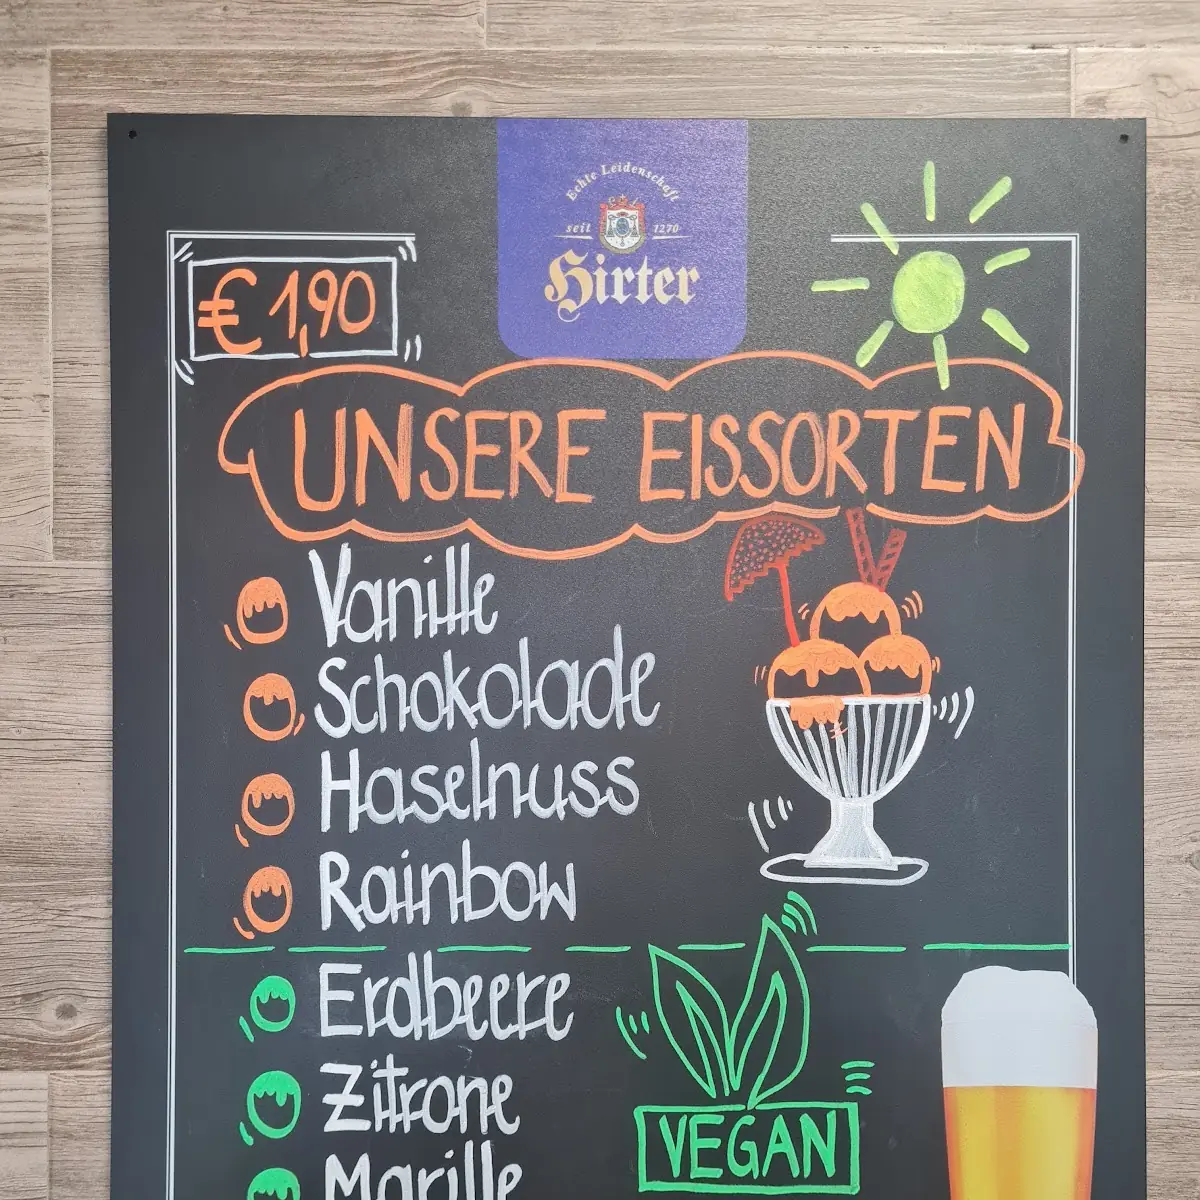 Echte Leidenschaft
seit 1270
Hirter
€ 1,90
UNSERE EISSORTEN
Vanille
Schokolade
Haselnuss
Rainbow
Erdbeere
Zitrone
Marille
VEGAN